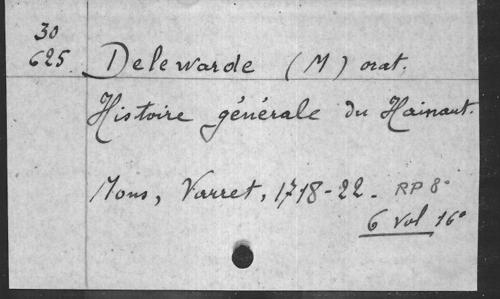 30
625. Delewarde (M) orat.
Histoire générale du Hainaut.
Mons, Varret, 1718-22. RP 8°
6 Vol 16°